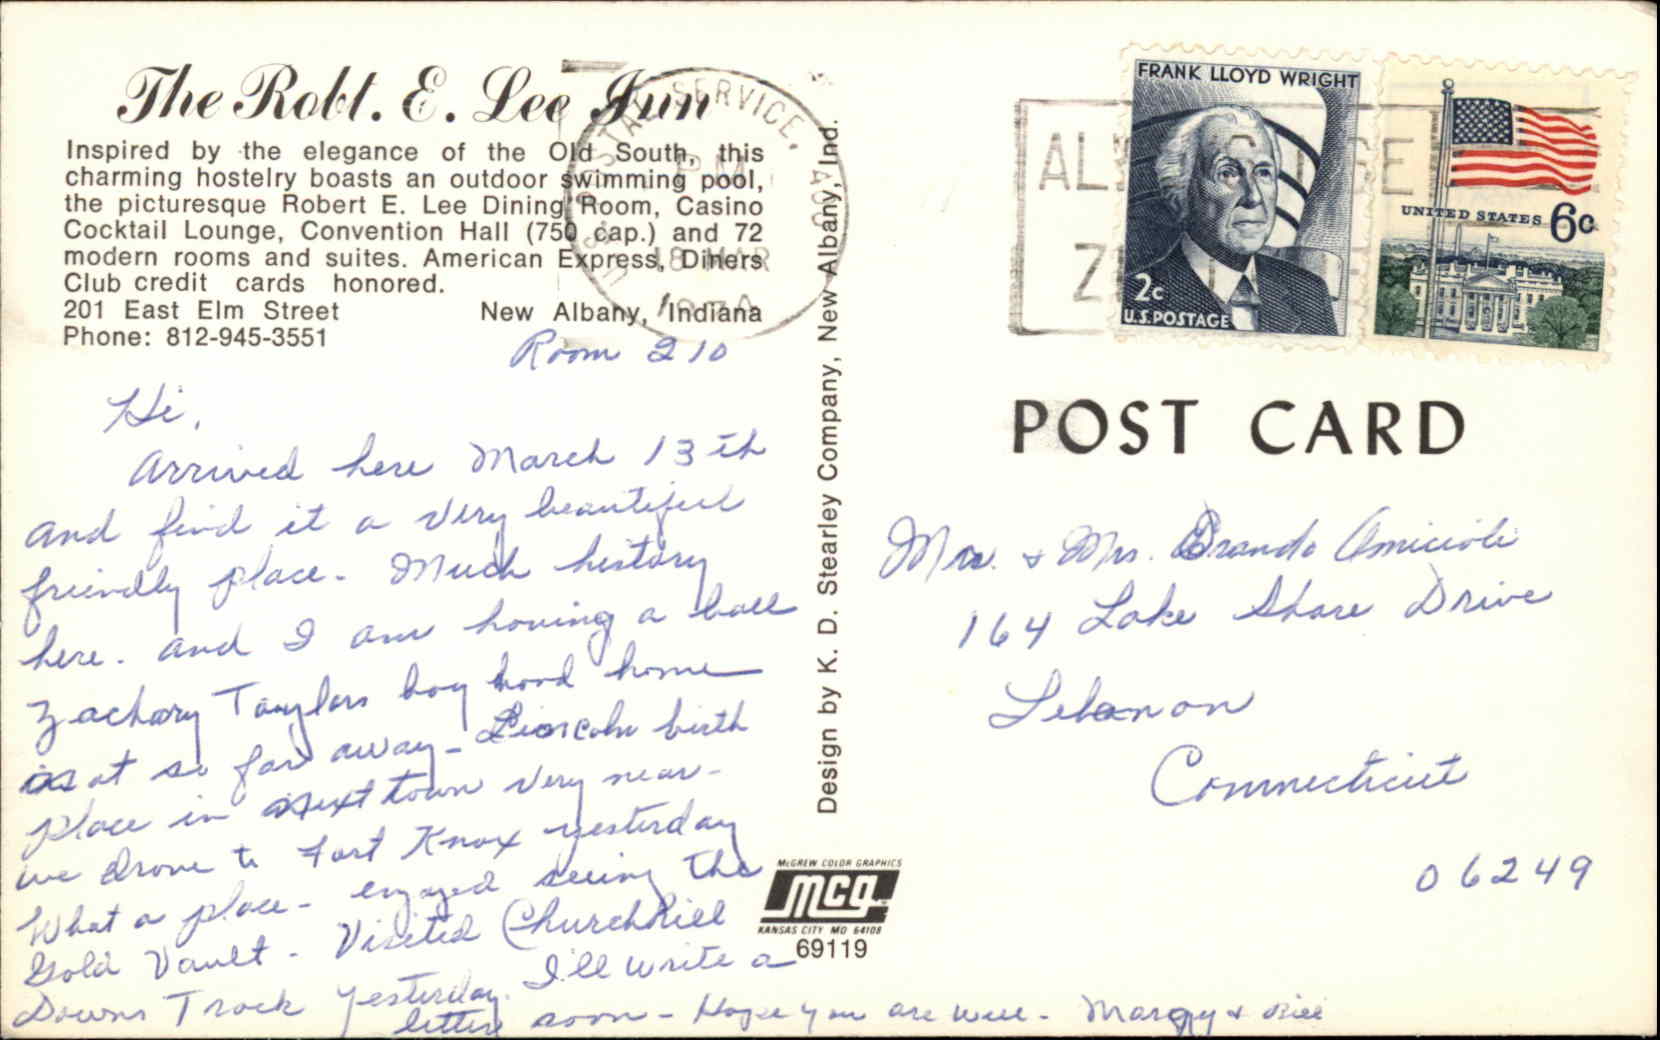 The Robt. E. Lee Inn
Inspired by the elegance of the Old South, this
charming hostelry boasts an outdoor swimming pool,
the picturesque Robert E. Lee Dining Room, Casino
Cocktail Lounge, Convention Hall (750 cap.) and 72
modern rooms and suites. American Express, Diners
Club credit cards honored.
201 East Elm Street New Albany, Indiana
Phone: 812-945-3551
Room 210
Hi,
Arrived here March 13th
and find it a very beautiful
friendly place. Much history
here. and I am having a ball
Zachary Taylors boy hood home
is at so far away - Lincoln birth
place in next town very near -
we drove to Fort Knox yesterday
What a place - enjoyed seeing the
Gold Vault - Visited Churchhill
Downs Track yesterday. I'll write a
letter soon - Hope you are well - Margy & Bill
Design by K. D. Stearley Company, New Albany, Ind.
McGREW COLOR GRAPHICS
mcg
KANSAS CITY MO 64108
69119
SERVICE,
PM
18 MAR
FRANK LLOYD WRIGHT
2c
U.S. POSTAGE
UNITED STATES 6c
POST CARD
Mr. & Mrs. Brando Amicioli
164 Lake Shore Drive
Lebanon
Connecticut
06249